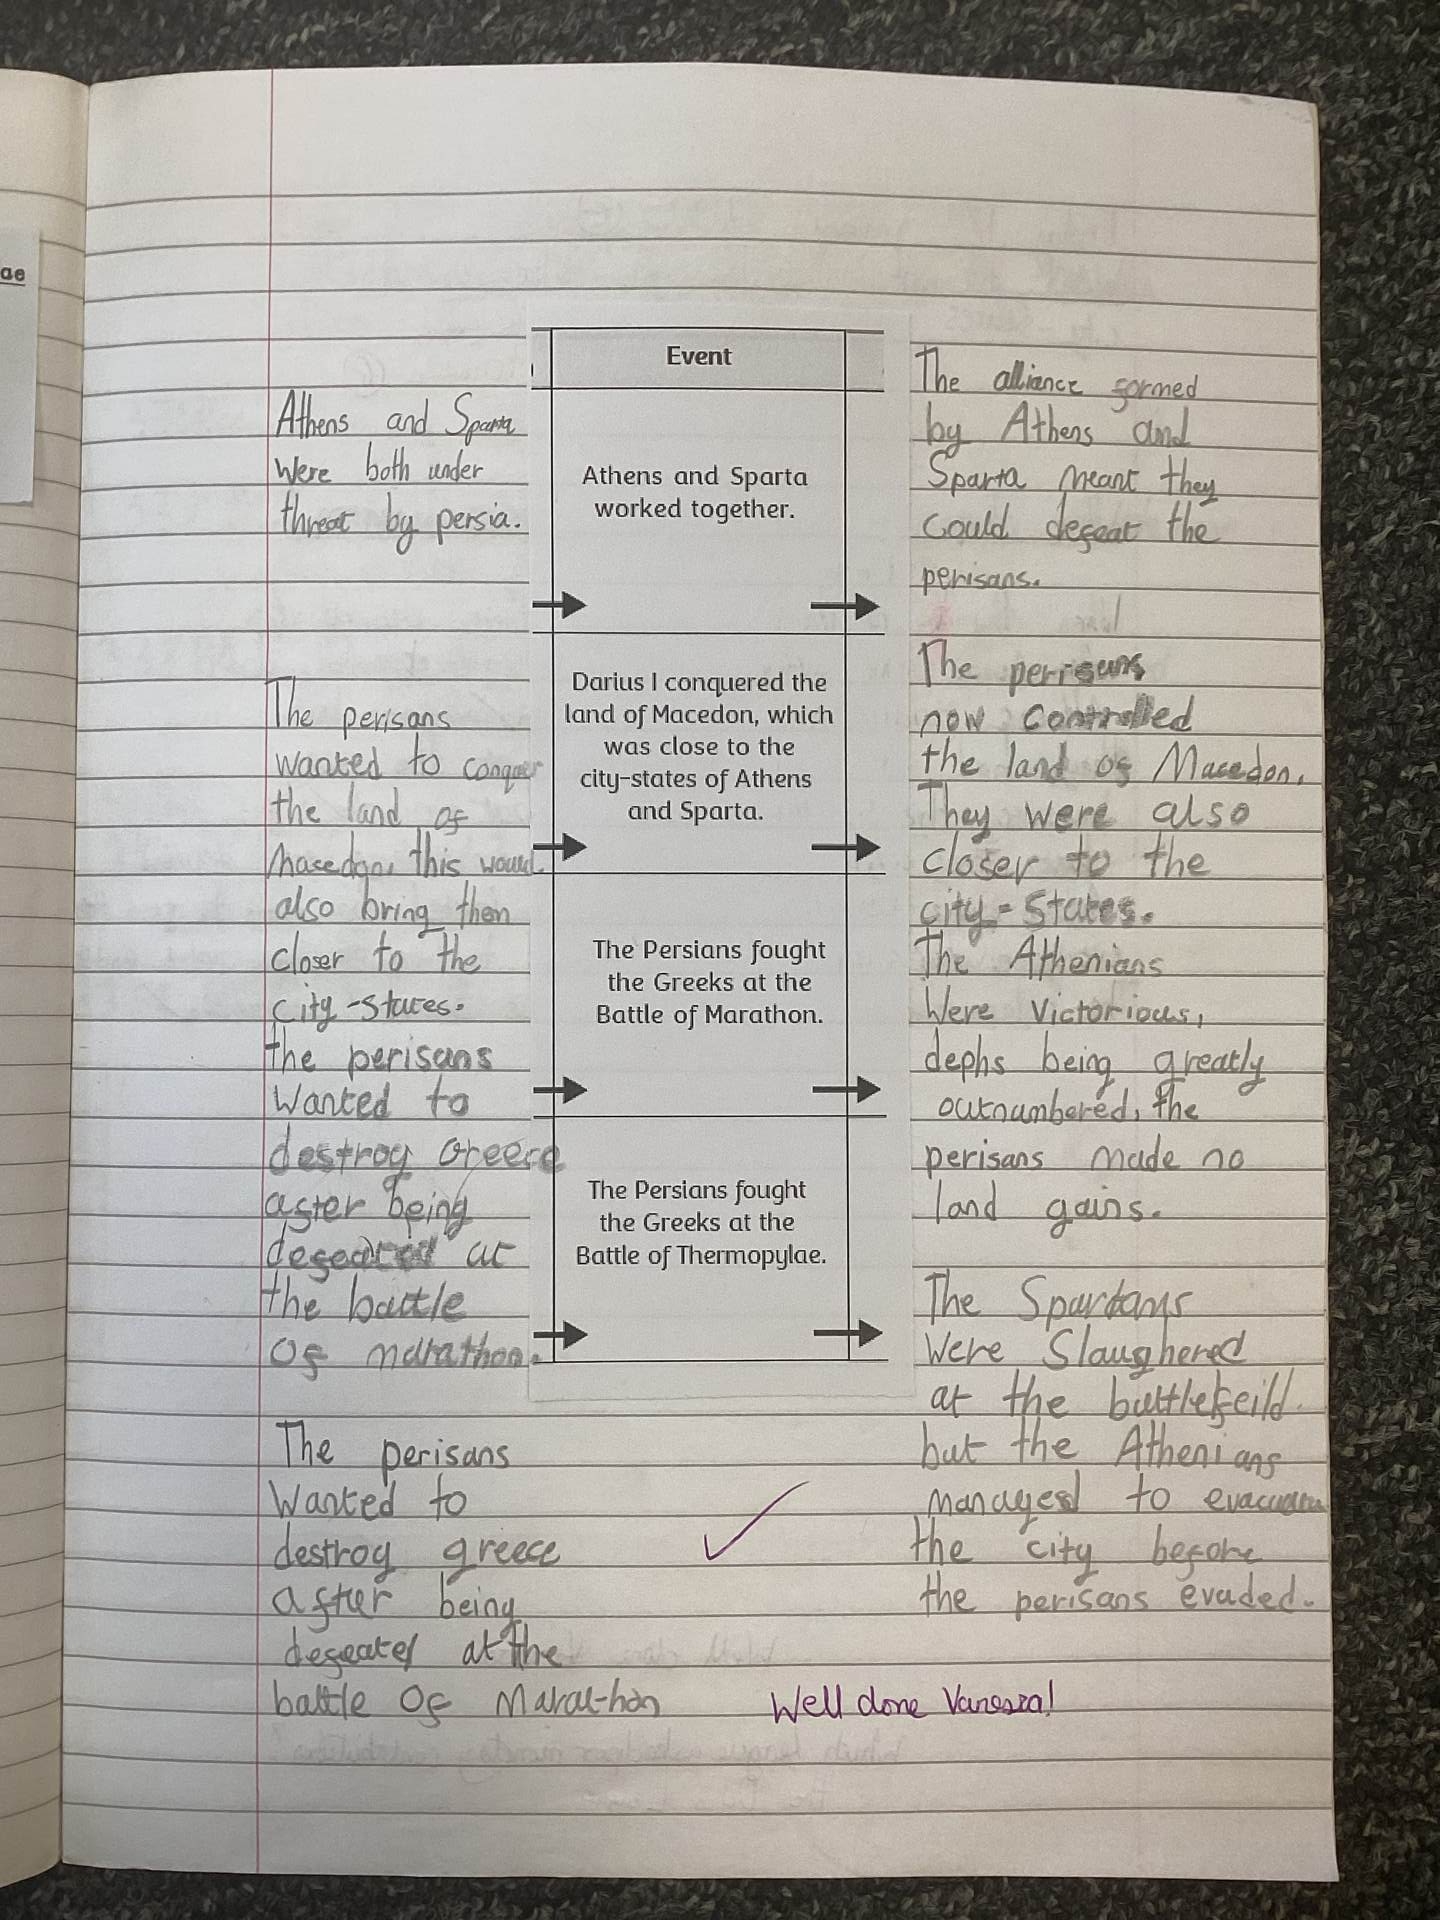 ae
Event
Athens and Sparta
were both under
threat by persia.
Athens and Sparta
worked together.
The alliance formed
by Athens and
Sparta meant they
could defeat the
perisans.
The perisans
wanted to conquer
the land of
Macedon, this would
also bring then
closer to the
city-states.
Darius I conquered the
land of Macedon, which
was close to the
city-states of Athens
and Sparta.
The perisans
now controlled
the land of Macedon.
They were also
closer to the
city-States.
the perisans
wanted to
destroy Greece
after being
defeated at
the battle
of marathon.
The Persians fought
the Greeks at the
Battle of Marathon.
The Athenians
were victorious,
dephs being greatly
outnumbered, the
perisans made no
land gains.
The perisans
wanted to
destroy greece
after being
defeated at the
battle of Marathon
The Persians fought
the Greeks at the
Battle of Thermopylae.
The Spartans
were Slaughered
at the battlefeild
but the Athenians
managed to
the city before
the perisans evaded.
Well done Vanessa!